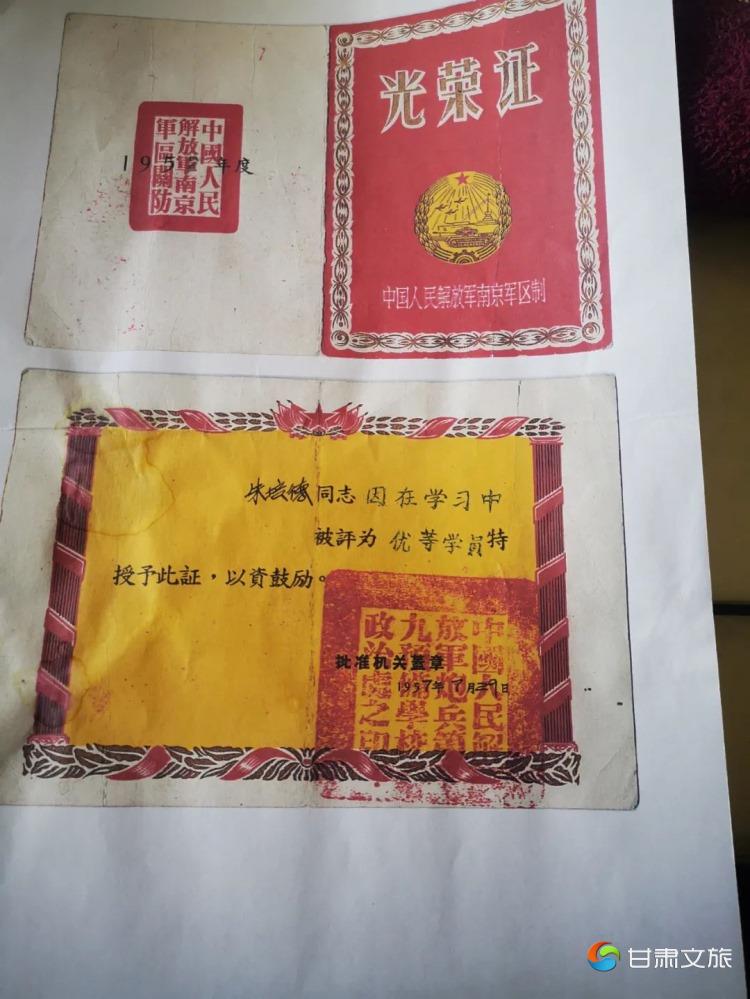 光荣证
中国人民解放军南京军区制
中國人民
解放軍南京
軍區關防
195 年度
朱培德同志因在学习中
被評为优等学員特
授予此証，以資鼓励。
批准机关蓋章
1957年 月 日
中國人民解
放軍炮兵第
九預備學校
政治處之印
甘肃文旅